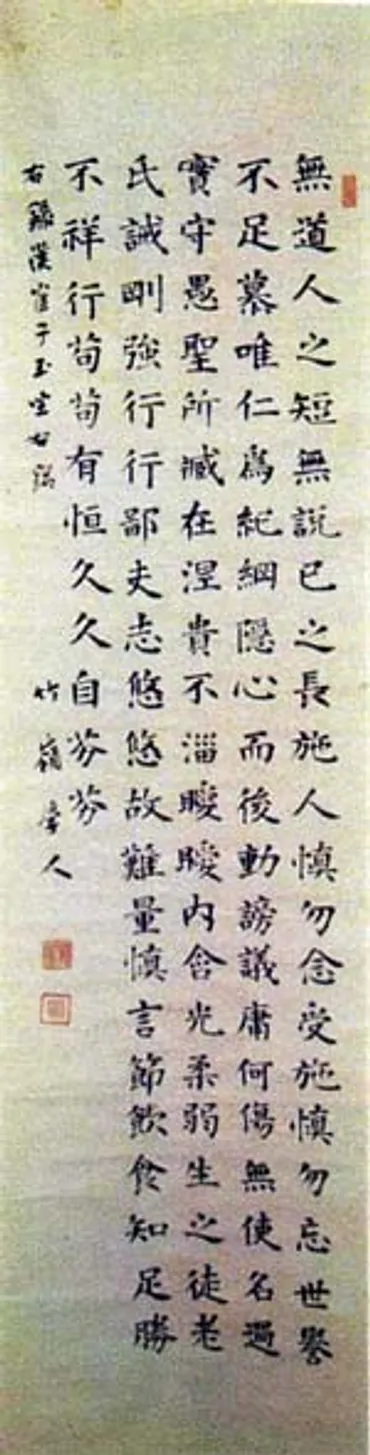 無道人之短無說己之長施人慎勿念受施慎勿忘世譽
不足慕唯仁爲紀綱隱心而後動謗議庸何傷無使名過
實守愚聖所臧在涅貴不淄曖曖內含光柔弱生之徒老
氏誡剛強行行鄙夫志悠悠故難量慎言節飲食知足勝
不祥行苟苟有恒久久自芬芬
右錄漢崔子玉坐右銘 竹嶺 人